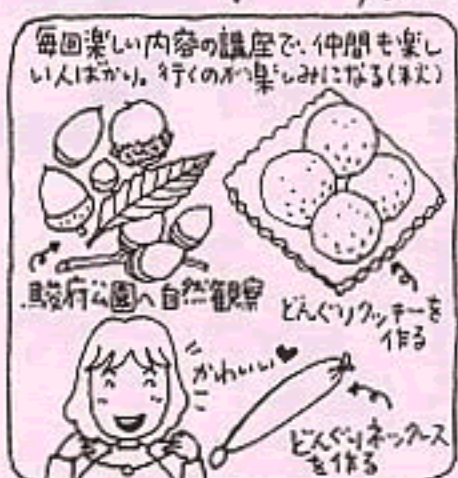 毎回楽しい内容の講座で、仲間も楽し
い人ばかり。行くのが楽しみになる(秋)
駿府公園へ自然観察
どんぐりクッキーを
作る
かわいい♥
どんぐりネックレス
を作る